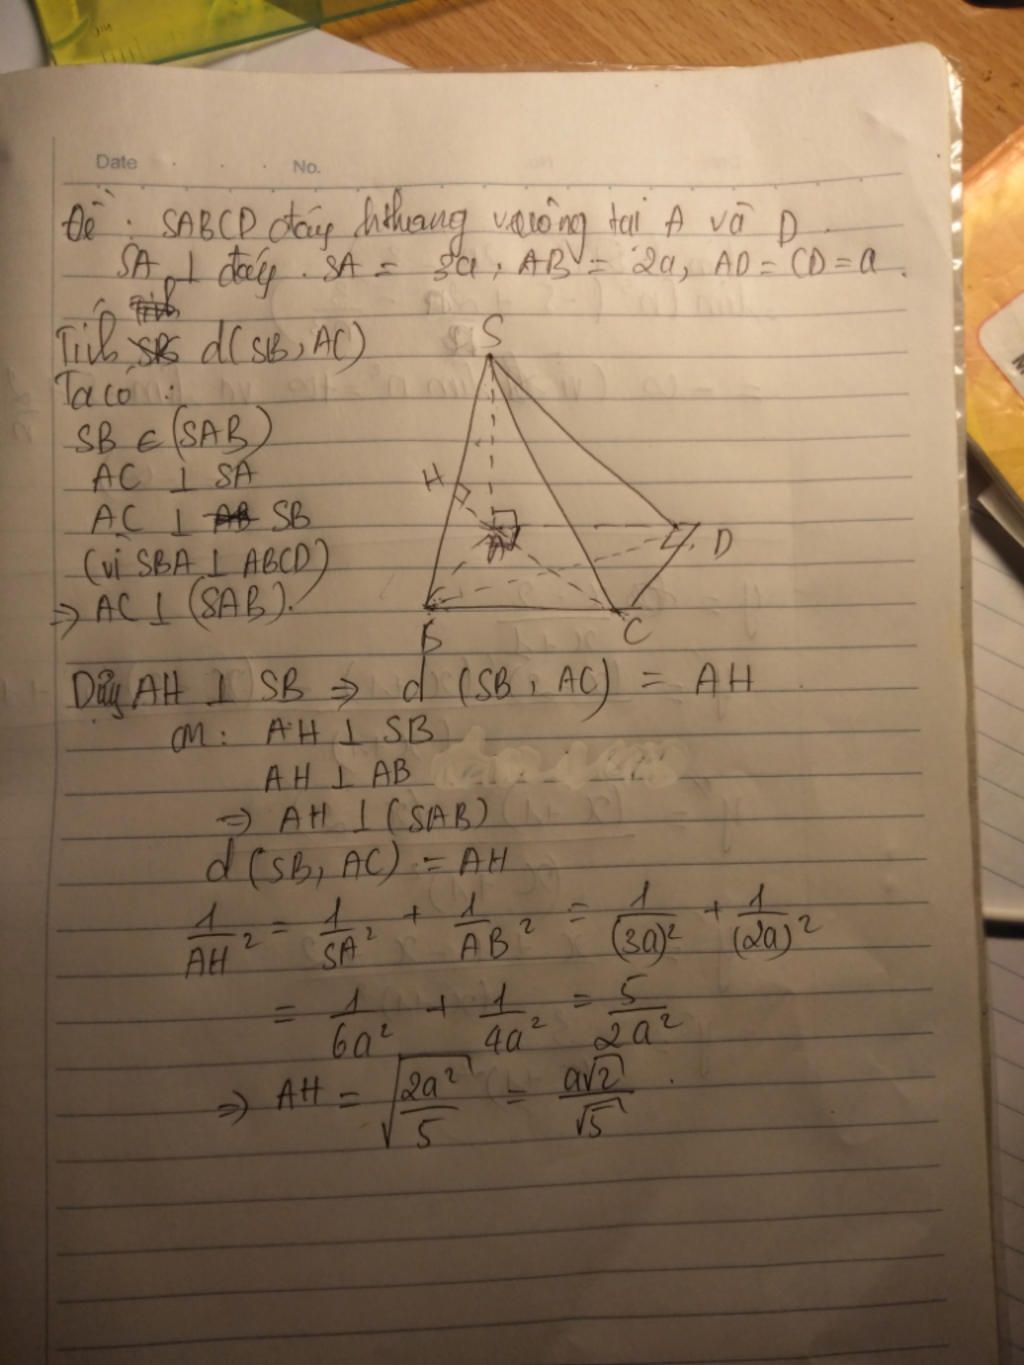 Date . . . No.
Đề : SABCD đáy hthang vuông tại A và D.
SA ⊥ đáy. SA = 3a, AB = 2a, AD = CD = a.
Tính d(SB, AC)
Ta có :
SB ∈ (SAB)
AC ⊥ SA
AC ⊥ SB
(vì SBA ⊥ ABCD)
⇒ AC ⊥ (SAB).
S
H
A
D
B
C
AH ⊥ SB ⇒ d (SB, AC) = AH
CM: AH ⊥ SB
AH ⊥ AB
⇒ AH ⊥ (SAB)
d (SB, AC) = AH
1/AH² = 1/SA² + 1/AB² = 1/(3a)² + 1/(2a)²
= 1/6a² + 1/4a² = 5/2a²
⇒ AH = √(2a²/5) = a√2/√5.